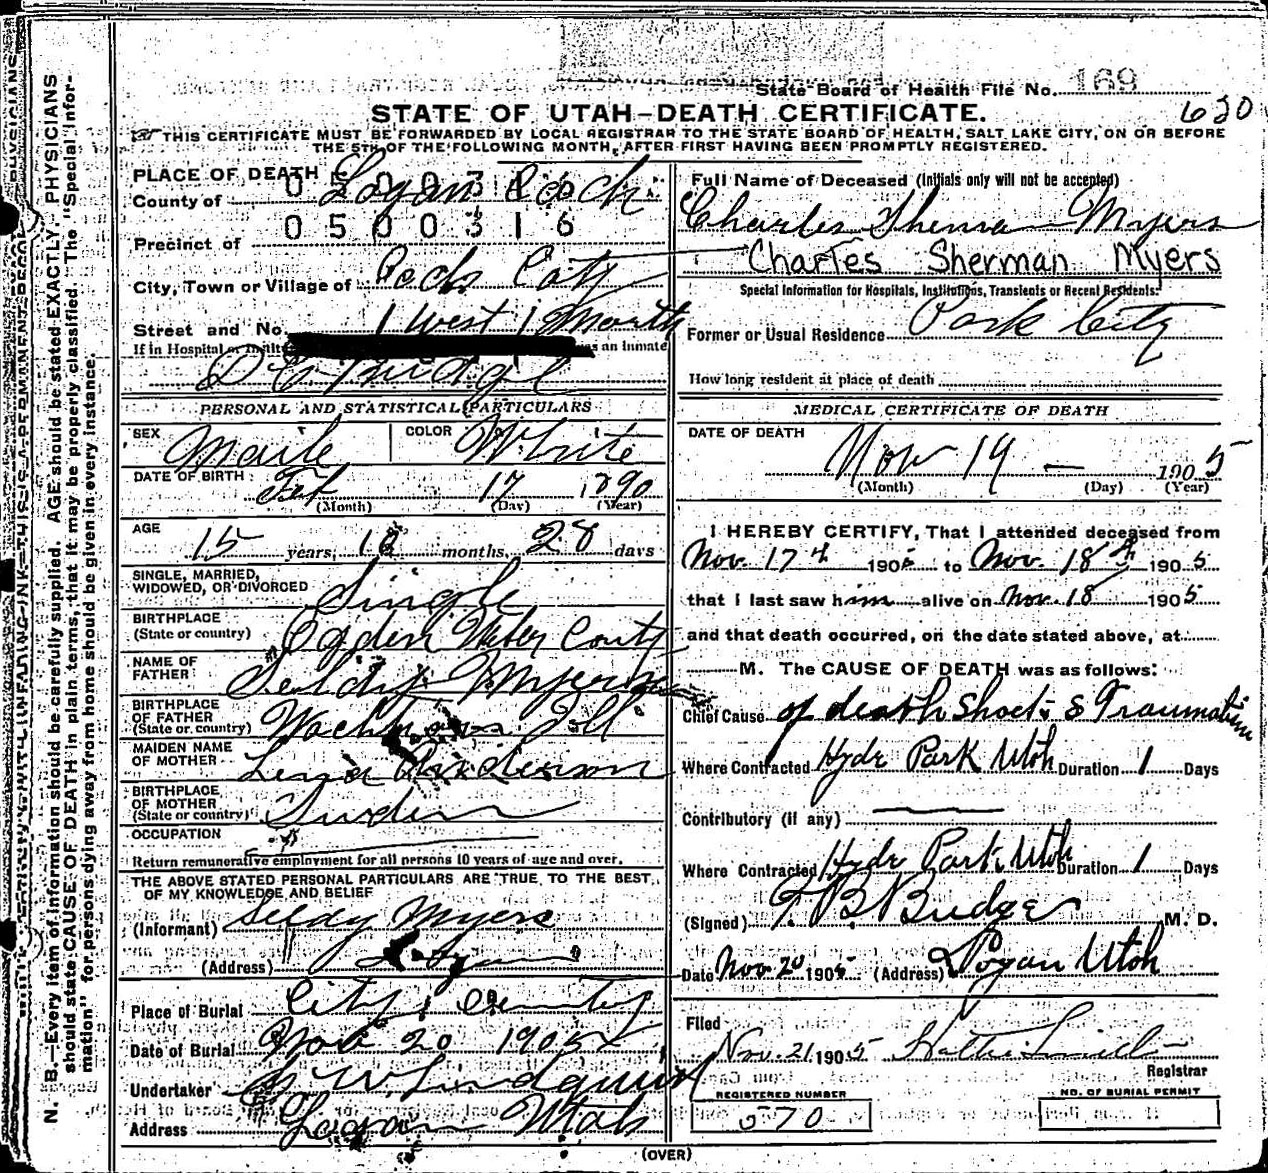 State Board of Health File No. 169
STATE OF UTAH—DEATH CERTIFICATE.
620
THIS CERTIFICATE MUST BE FORWARDED BY LOCAL REGISTRAR TO THE STATE BOARD OF HEALTH, SALT LAKE CITY, ON OR BEFORE
THE 5TH OF THE FOLLOWING MONTH, AFTER FIRST HAVING BEEN PROMPTLY REGISTERED.
PLACE OF DEATH
0500316
County of Logan Cach
0500316
Precinct of
City, Town or Village of City
Street and No. 1 West 1 North
If in Hospital or as an inmate
PERSONAL AND STATISTICAL PARTICULARS
SEX Maile COLOR White
DATE OF BIRTH Feb 17 1890
(Month) (Day) (Year)
AGE 15 years, months, 28 days
SINGLE, MARRIED,
WIDOWED, OR DIVORCED Single
BIRTHPLACE
(State or country) Ogden Weber County
NAME OF
FATHER Myers
BIRTHPLACE
OF FATHER
(State or country)
MAIDEN NAME
OF MOTHER Lena Anderson
BIRTHPLACE
OF MOTHER
(State or country) Suden
OCCUPATION
Return remunerative employment for all persons 10 years of age and over.
THE ABOVE STATED PERSONAL PARTICULARS ARE TRUE TO THE BEST
OF MY KNOWLEDGE AND BELIEF
(Informant) Seldy Myers
(Address) Logan
Place of Burial City Cemetery
Date of Burial Nov 20 1905
Undertaker Lindquist
Address Logan Utah
Full Name of Deceased (Initials only will not be accepted)
Charles Sherman Myers
Charles Sherman Myers
Special Information for Hospitals, Institutions, Transients or Recent Residents:
Former or Usual Residence Park City
How long resident at place of death
MEDICAL CERTIFICATE OF DEATH
DATE OF DEATH
Nov 19 — 1905
(Month) (Day) (Year)
I HEREBY CERTIFY, That I attended deceased from
Nov. 17th 1905 to Nov. 18th 1905
that I last saw him alive on Nov. 18 1905
and that death occurred, on the date stated above, at
M. The CAUSE OF DEATH was as follows:
Chief Cause of death Shock & Traumatism
Where Contracted Hyde Park Utah Duration 1 Days
Contributory (if any)
Where Contracted Hyde Park Utah Duration 1 Days
(Signed) T. B Budge M. D.
Date Nov 20 1905 (Address) Logan Utah
Filed
Nov. 21 1905 Hattie Smith
Registrar
REGISTERED NUMBER
570
NO. OF BURIAL PERMIT
(OVER)
N. B.—Every item of information should be carefully supplied. AGE should be stated EXACTLY. PHYSICIANS
should state CAUSE OF DEATH in plain terms, that it may be properly classified. The "Special Infor-
mation" for persons dying away from home should be given in every instance.